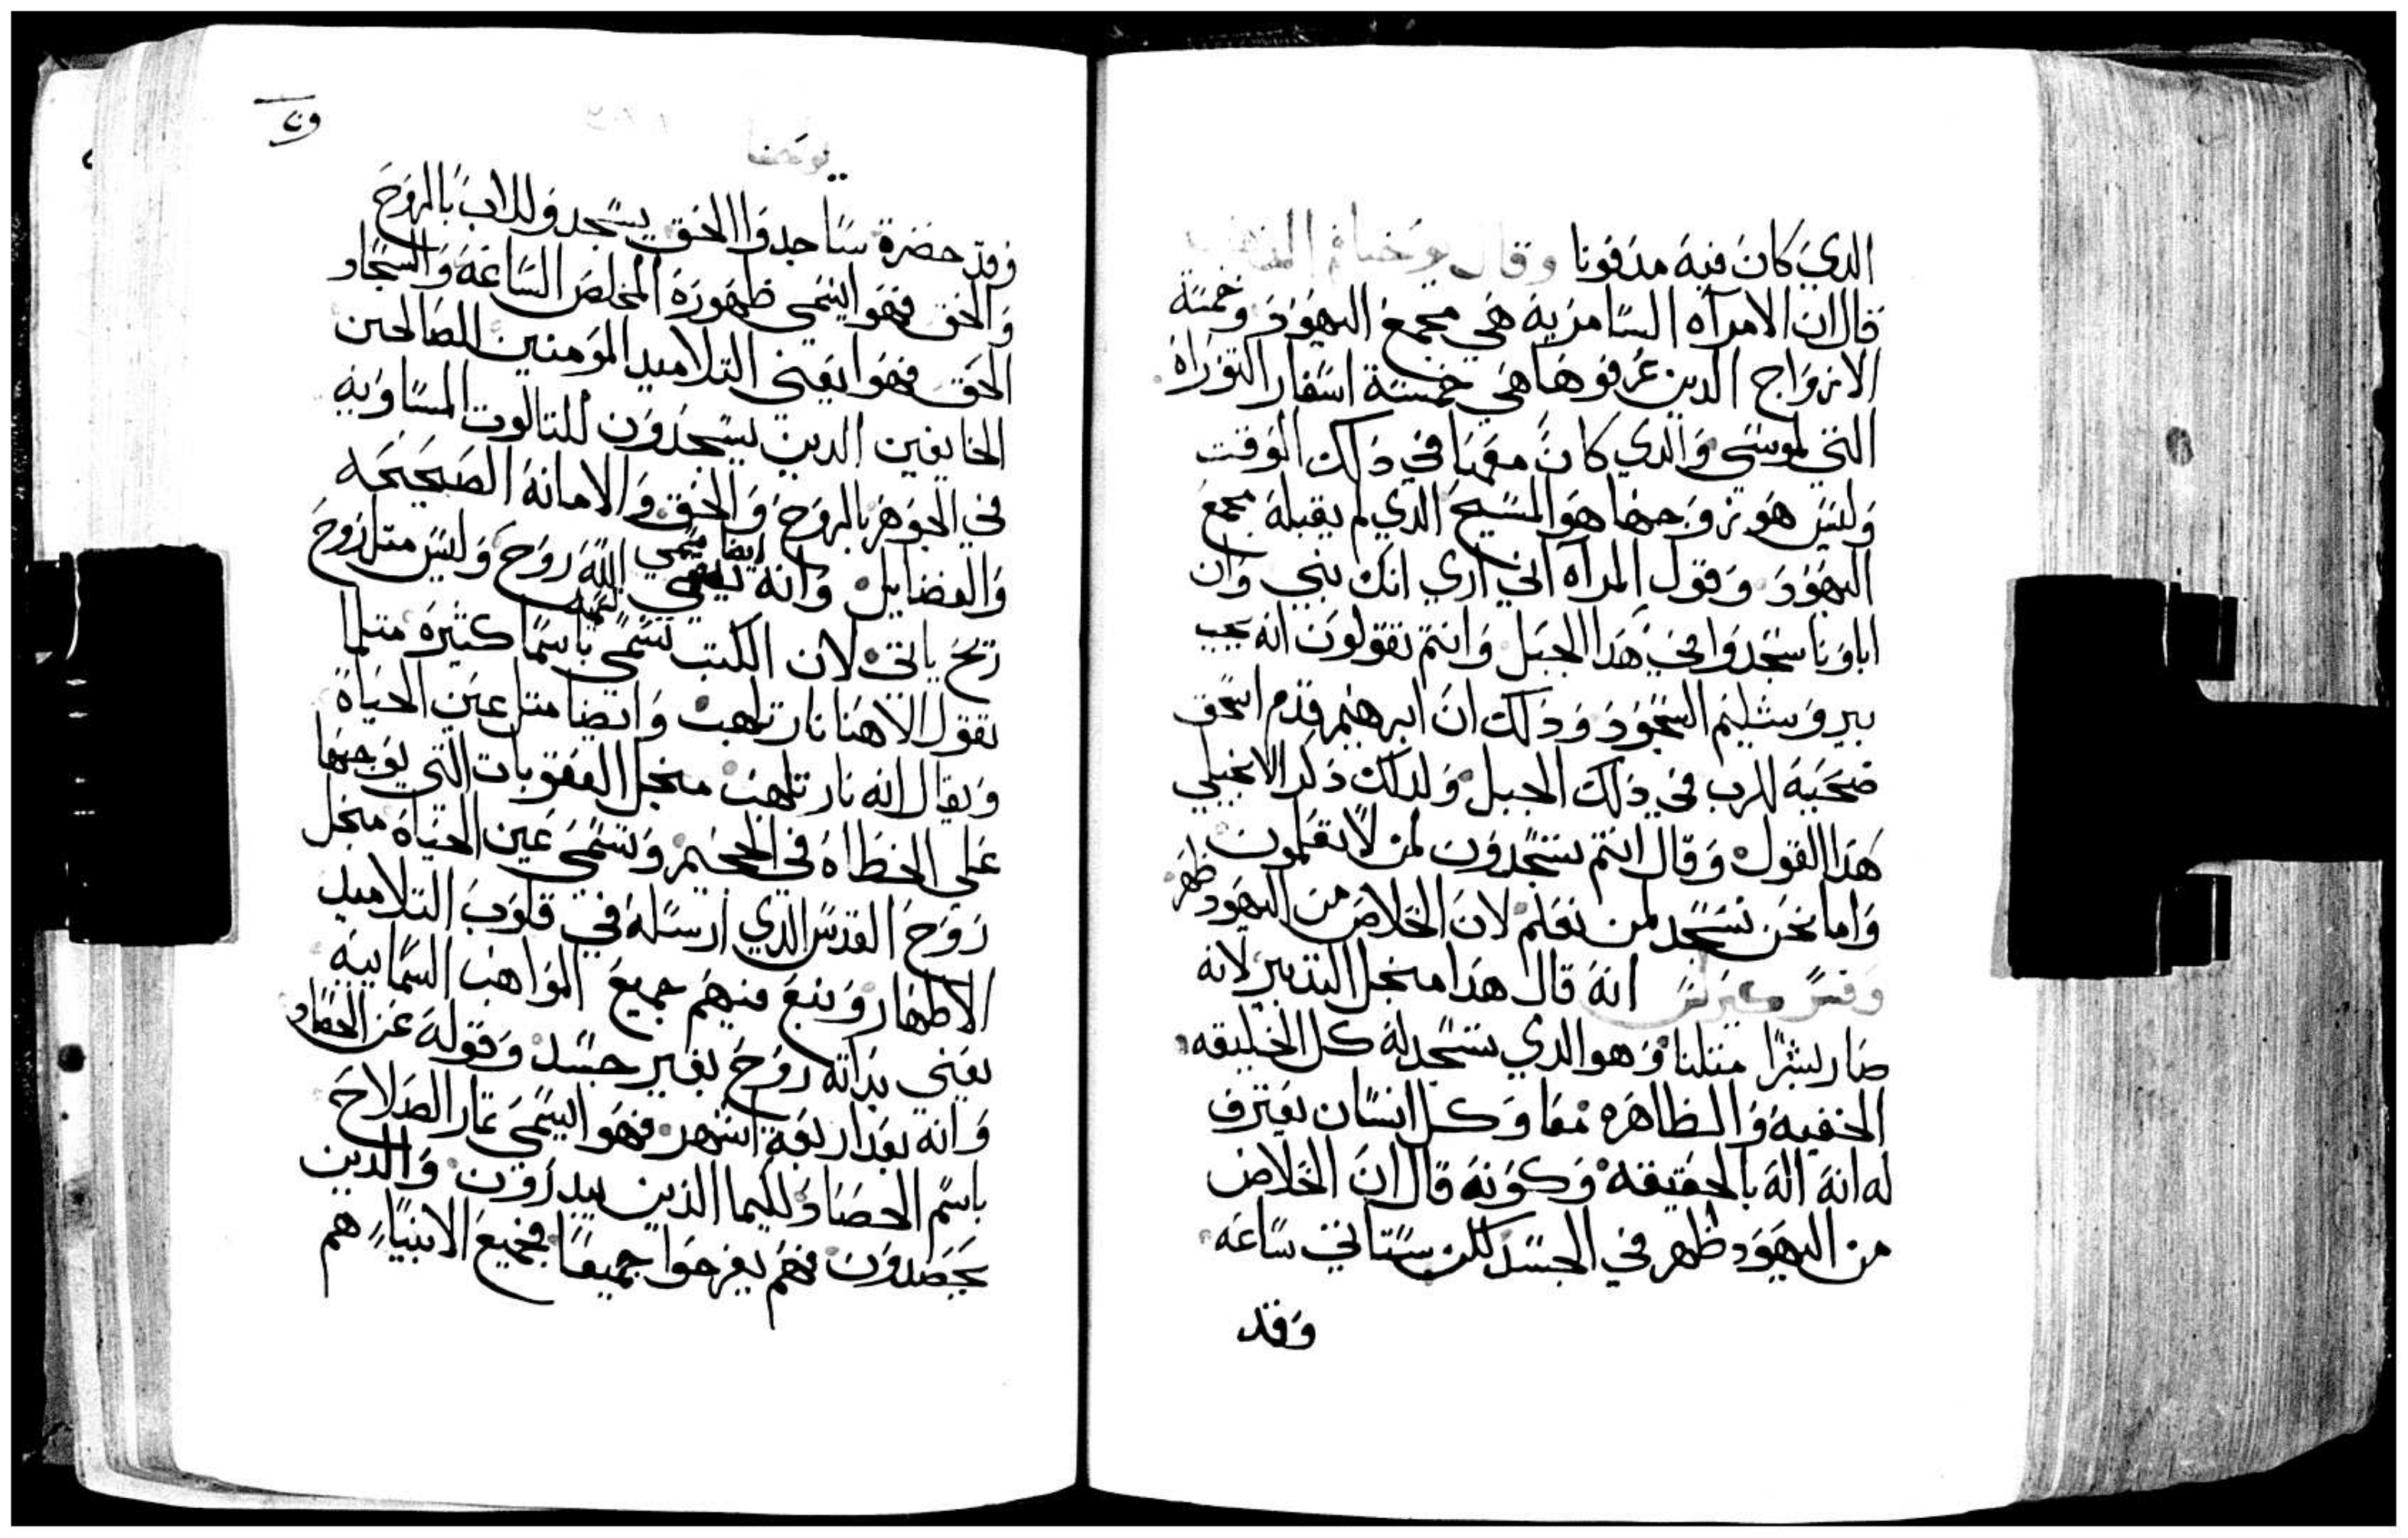 الدي كان فيه مدفونا وقال يوحنا فم الدهب
قال ان الامراه السامريه هي مجمع اليهود وخمسة
الازواج الدين عرفوها هي خمسة اسفار التوراة
التي لموسى والدي كان معها في دلك الوقت
وليس هو زوجها هو المسيح الدي لم يقبله مجمع
اليهود وقول المراه اني اري انك نبي وان
اباونا سجدوا في هدا الجبل وانتم تقولون انه يجب
بيروشليم السجود ودلك ان ابرهيم قدم اسحق
ضحية للرب في دلك الجبل ولدلك دكر الانجيلي
هدا القول وقال انتم تسجدون لمن لا تعلمون
واما نحن نسجد لمن نعلم لان الخلاص من اليهود ظهر
وفسر كيرلس انه قال هدا منجل التدبير لانه
صار بشرا متلنا وهو الدي تسجد له كل الخليقه
الخفيه والظاهره معا وكل انسان يعترف
له انه اله بالحقيقه وكونه قال ان الخلاص
من اليهود ظهر في الجسد لكن ستاتي ساعه
وقد
يوحنا
وقد حضرة ساجدوا الحق يسجدو للاب بالروح
والحق فهو ايسمي ظهوره المخلص الساعة والسجاد
الحق فهو ايعني التلاميد المومنين الصالحين
الخايفين الدين يسجدون للتالوت المساويه
في الجوهر بالروح والحق والامانة الصحيحه
والفضايل وانه ايضا يسمي الله روح وليس متل روح
ريح ياتي لان الكتب تسمي باسما كثيرة متلما
تقول الاهنا نار تلهب وايضا متل عين الحياة
ويقال انه نار تلهب منجل العقوبات التي يوجبها
على الخطاه في الجحيم وتسمى عين الحياة منجل
روح القدس الدي ارسله في قلوب التلاميد
الاطهار وينبع منهم جميع المواهب السماييه
يعني بداته روح بغير جسد وقوله عن الحصاد
وانه بعد اربعة اشهر فهو ايسمي تمار الصلاح
باسم الحصاد لكيما الذين يبدرون والدين
يحصدون فهم يفرحوا جميعا فجميع الانبياء هم